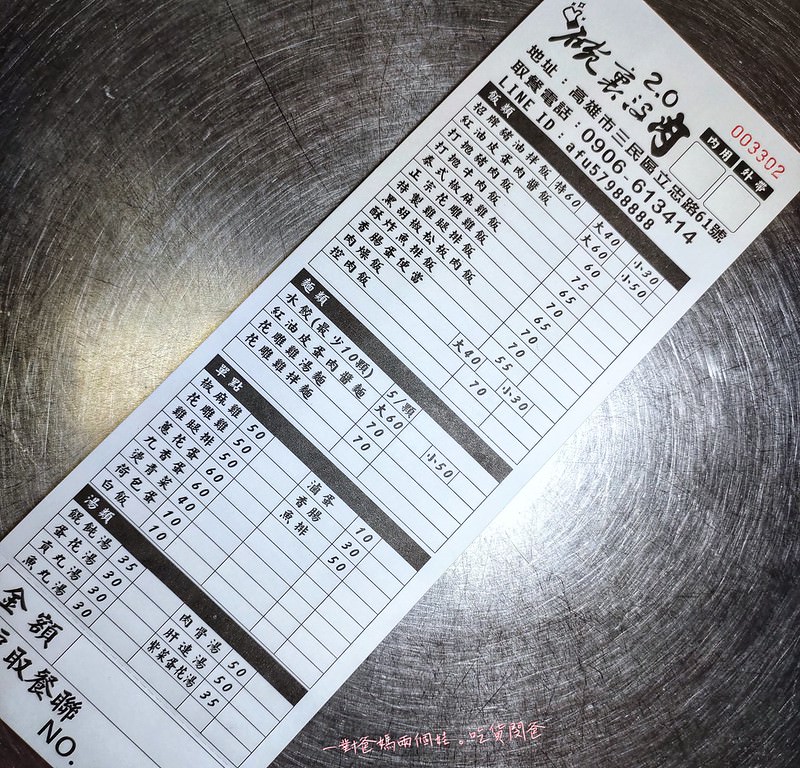 碗裏沒肉 2.0
內用 外帶
003302
地址：高雄市三民區立忠路61號
取餐電話：0906-613414
LINE ID：afu57988888
飯類
招牌豬油拌飯 特60 大40 小30
紅油皮蛋肉醬飯 大60 小50
打拋豬肉飯 60
打拋牛肉飯 75
泰式椒麻雞飯 65
正宗花雕雞飯 70
特製雞腿排飯 65
黑胡椒松板肉飯 70
酥炸魚排飯 70
香腸蛋便當 55
肉燥飯 大40 小30
控肉飯 70
麵類
水餃(最少10顆) 5/顆
紅油皮蛋肉醬麵 大60 小50
花雕雞湯麵 70
花雕雞拌麵 70
單點
椒麻雞 50
花雕雞 50 滷蛋 10
雞腿排 50 香腸 30
蔥花蛋 60 魚排 50
九香蛋 60
燙青菜 40
荷包蛋 10
白飯 10
湯類
餛飩湯 35 肉骨湯 50
蛋花湯 30 肝連湯 50
貢丸湯 30 紫菜蛋花湯 35
魚丸湯 30
金額
取餐聯
NO.
一對爸媽兩個娃。吃貨閔爸